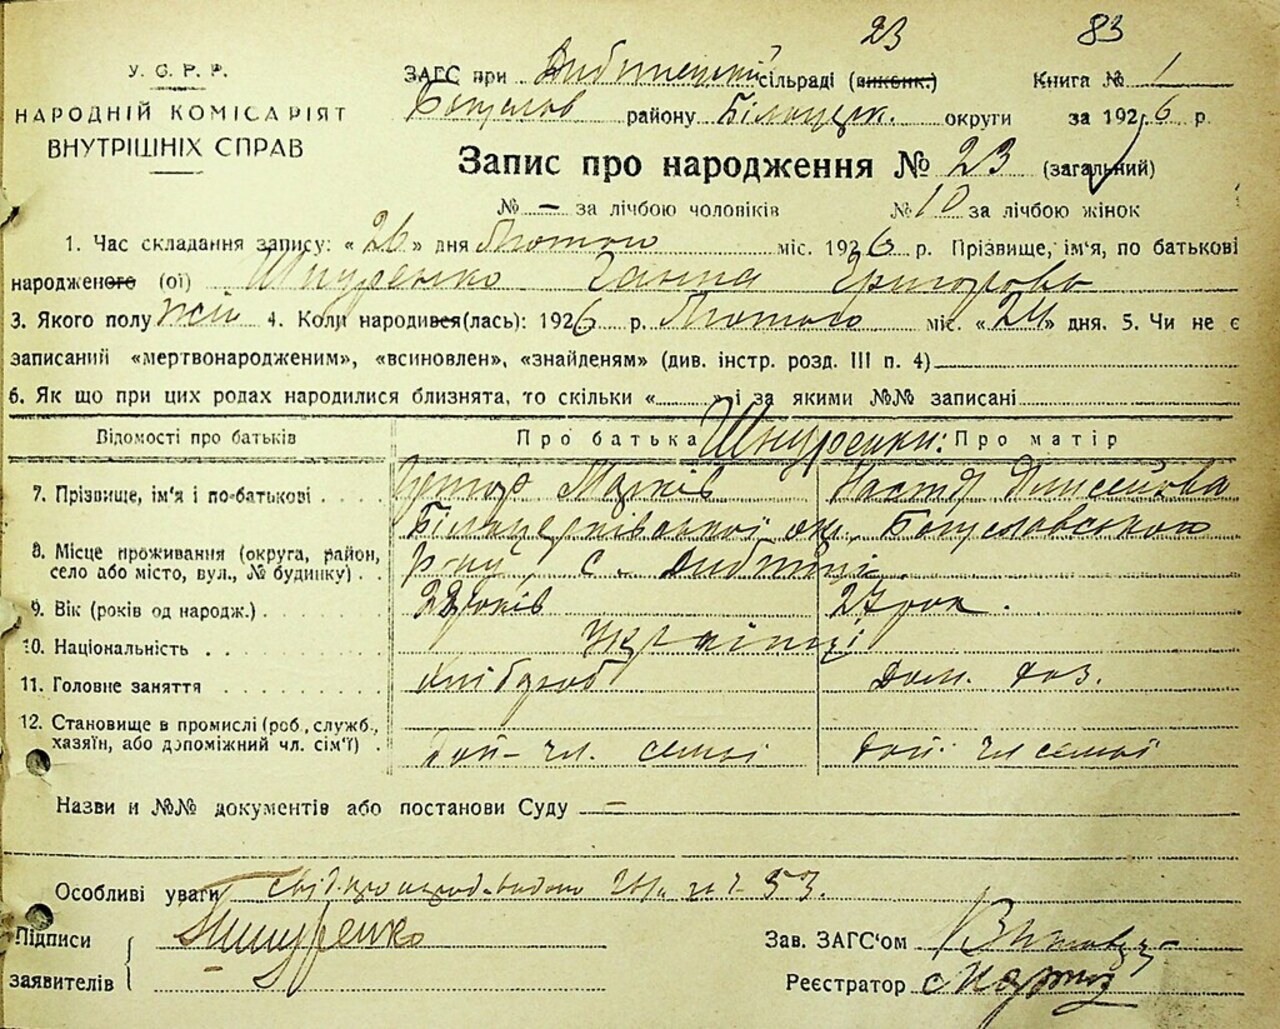 23 83
У. С. Р. Р.
НАРОДНІЙ КОМІСАРІЯТ
ВНУТРІШНІХ СПРАВ
ЗАГС при Дибинецькій сільраді (виконк.) Книга № 1
Богуслав району Білоцерк. округи за 1926 р.
Запис про народження № 23 (загальний)
№ — за лічбою чоловіків № 10 за лічбою жінок
1. Час складання запису: «26» дня Лютого міс. 1926 р. Прізвище, ім'я, по батькові
народженого (ої) Шнуренко Ганна Григорова
3. Якого полу жін 4. Коли народився(лась): 1926 р. Лютого міс. «24» дня. 5. Чи не є
записаний «мертвонародженим», «всиновлен», «знайденям» (див. інстр. розд. III п. 4)
6. Як що при цих родах народилися близнята, то скільки « » і за якими №№ записані
Відомості про батьків Про батька Шнуренки: Про матір
7. Прізвище, ім'я і по-батькові Григор Марків Настя Єлисейова
Білоцерківської окр. Богуславського
8. Місце проживання (округа, район,
село або місто, вул., № будинку) р-ну, с. Дибинці
9. Вік (років од народж.) 22 років 27 рок.
10. Національність Українці
11. Головне заняття хлібороб дом. хоз.
12. Становище в промислі (роб., служб.,
хазяїн, або допоміжний чл. сім'ї) чл. семьї чл семьї
Назви и №№ документів або постанови Суду —
Особливі уваги 53.
Підписи
заявителів Шнуренко
Зав. ЗАГС'ом
Реєстратор